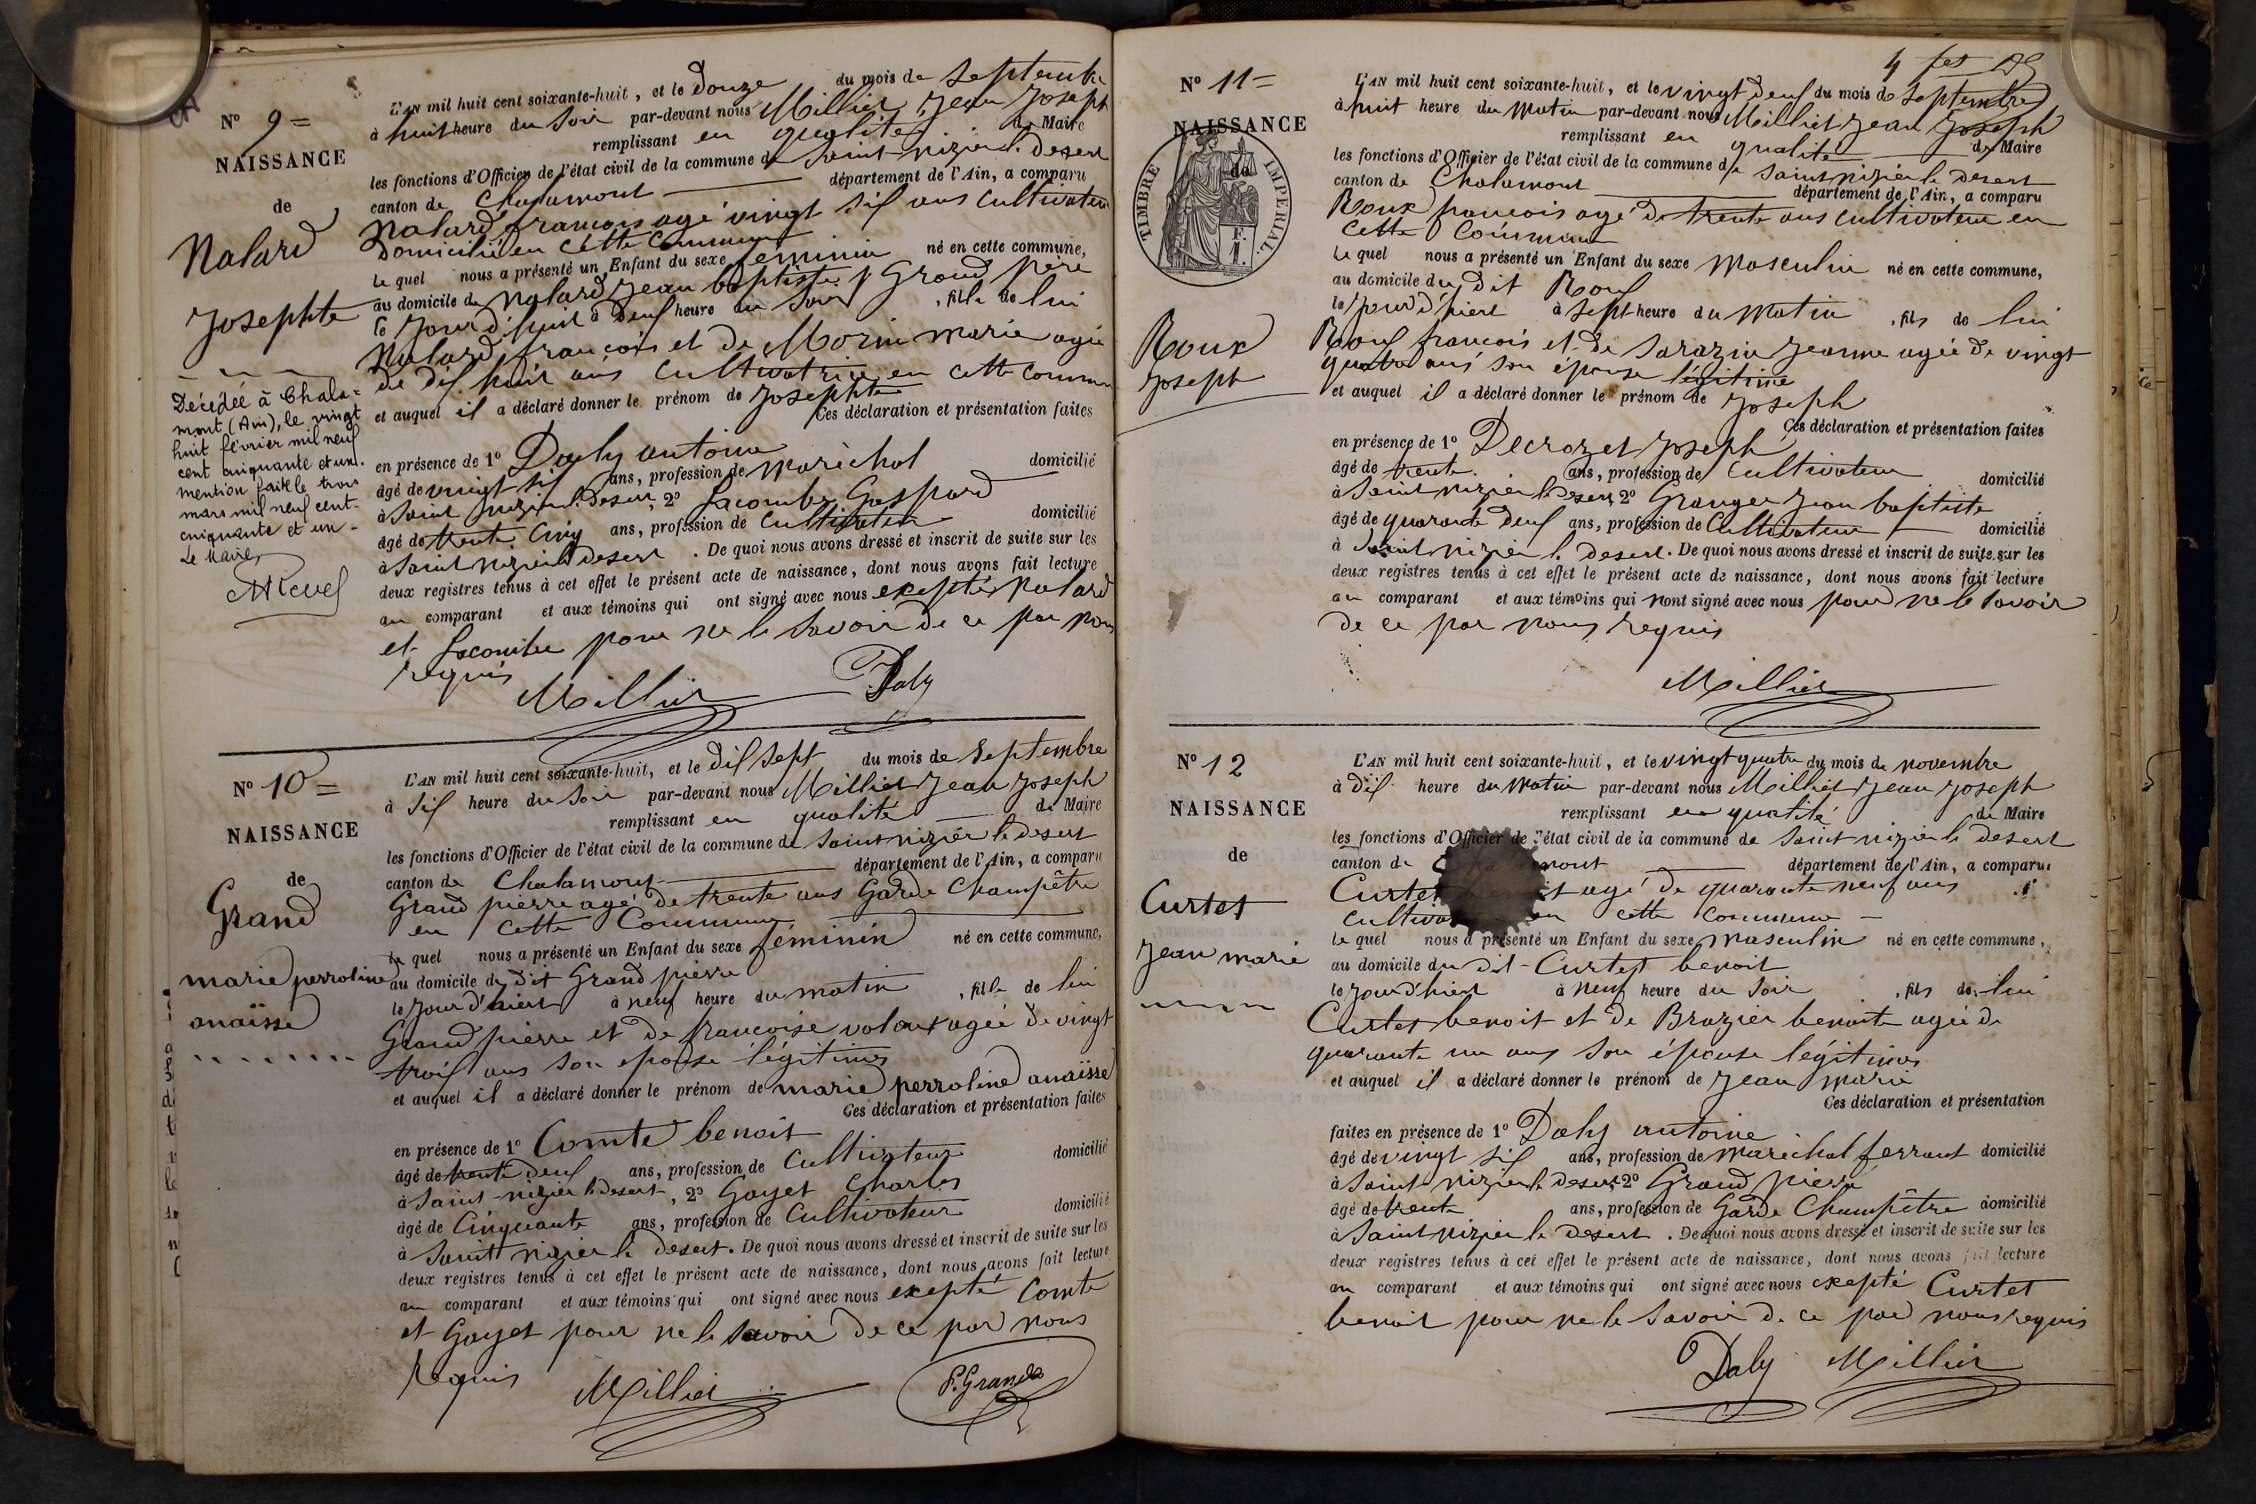 N° 9 =
NAISSANCE
de
Nalard
Josephte
Décédée à Chala=
mont (Ain), le vingt
huit février mil neuf
cent cinquante et un.
mention faite le trois
mars mil neuf cent
cinquante et un -
Le Maire,
L'AN mil huit cent soixante-huit, et le Douze du mois de Septembre
à huit heure du Soir par-devant nous Milliet Jean Joseph
remplissant en qualité de Maire
les fonctions d'Officier de l'état civil de la commune de Saint nizier le Desert
canton de Chalamont département de l'Ain, a comparu
Nalard françois agé vingt six ans Cultivateur
Domicilié en cette commune
le quel nous a présenté un Enfant du sexe feminin né en cette commune,
au domicile de Nalard Jean baptiste Grand père
le Jour d'huit à Deux heure du Soir , fille de lui
Nalard françois et de Morin marie agée
de dix huit ans cultivatrice en cette commune
et auquel il a déclaré donner le prénom de Josephte
Ces déclaration et présentation faites
en présence de 1° Daly antoine
âgé de vingt six ans, profession de Maréchal domicilié
à Saint nizier le Desert, 2° Lacombe Gaspard
âgé de trente Cinq ans, profession de Cultivateur domicilié
à Saint nizier le Desert . De quoi nous avons dressé et inscrit de suite sur les
deux registres tenus à cet effet le présent acte de naissance, dont nous avons fait lecture
au comparant et aux témoins qui ont signé avec nous exepté Nalard
et Lacombe pour ne le Savoir de ce par nous
requis
Milliet Daly
N° 10 =
NAISSANCE
de
Grand
marie perroline
anaïsse
L'AN mil huit cent soixante-huit, et le dix Sept du mois de Septembre
à Six heure du Soir par-devant nous Milliet Jean Joseph
remplissant en qualité de Maire
les fonctions d'Officier de l'état civil de la commune de Saint nizier le desert
canton de Chalamont département de l'Ain, a comparu
Grand pierre agé de trente ans Garde Champêtre
en cette Commune
le quel nous a présenté un Enfant du sexe féminin né en cette commune,
au domicile du dit Grand pierre
le Jour d'hiert à neuf heure du matin , fille de lui
Grand pierre et de françoise volant agée de vingt
troix ans son epouse légitimes
et auquel il a déclaré donner le prénom de marie perroline anaïsse
Ces déclaration et présentation faites
en présence de 1° Comte benoit
âgé de trente deux ans, profession de Cultivateur domicilié
à Saint-nizier le Desert , 2° Goyet Charles
âgé de Cinquante ans, profession de Cultivateur domicilié
à Saint nizier le Desert. De quoi nous avons dressé et inscrit de suite sur les
deux registres tenus à cet effet le présent acte de naissance, dont nous avons fait lecture
au comparant et aux témoins qui ont signé avec nous exepté Comte
et Goyet pour ne le savoir de ce par nous
requis Milliet P. Grand
N° 11 =
NAISSANCE
de
TIMBRE IMPERIAL
Roux
Joseph
L'AN mil huit cent soixante-huit, et le vingt Deux du mois de Septembre
à huit heure du Matin par-devant nous Milliet Jean Joseph
remplissant en qualité de Maire
les fonctions d'Officier de l'état civil de la commune de Saint nizier le desert
canton de Chalamont département de l'Ain, a comparu
Roux françois agé de trente ans cultivateur en
cette Commune
le quel nous a présenté un Enfant du sexe Masculin né en cette commune,
au domicile du dit Roux
le Jour d'hiert à Sept heure du Matin , fils de lui
Roux françois et de Sarazin Jeanne agée de vingt
quatre ans son épouse légitime
et auquel il a déclaré donner le prénom de Joseph
Ces déclaration et présentation faites
en présence de 1° Decrozet Joseph
âgé de trente ans, profession de Cultivateur domicilié
à Saint nizier le Desert, 2° Granger Jean baptiste
âgé de quarante deux ans, profession de Cultivateur domicilié
à Saint nizier le desert. De quoi nous avons dressé et inscrit de suite sur les
deux registres tenus à cet effet le présent acte de naissance, dont nous avons fait lecture
au comparant et aux témoins qui nont signé avec nous pour ne le Savoir
de ce par nous requis
Milliet
N° 12
NAISSANCE
de
Curtet
Jean marie
L'AN mil huit cent soixante-huit, et le vingt quatre du mois de novembre
à Dix heure du Matin par-devant nous Milliet Jean Joseph
remplissant en qualité de Maire
les fonctions d'Officier de l'état civil de la commune de Saint nizier le desert
canton de département de l'Ain, a comparu
Curtet agé de quarante neuf ans
en cette commune
le quel nous a présenté un Enfant du sexe masculin né en cette commune,
au domicile du dit Curtet benoit
le Jour d'hiert à neuf heure du Soir , fils de lui
Curtet benoit et de Brazier benoite agée de
quarante un ans Son épouse légitimes
et auquel il a déclaré donner le prénom de Jean marie
Ces déclaration et présentation
faites en présence de 1° Daly antoine
âgé de vingt Six ans, profession de Maréchal ferrant domicilié
à Saint nizier le desert, 2° Grand pierre
âgé de trente ans, profession de Garde Champêtre domicilié
à Saint nizier le desert . De quoi nous avons dressé et inscrit de suite sur les
deux registres tenus à cet effet le présent acte de naissance, dont nous avons fait lecture
au comparant et aux témoins qui ont signé avec nous exepté Curtet
benoit pour ne le Savoir de ce par nous requis
Daly Milliet